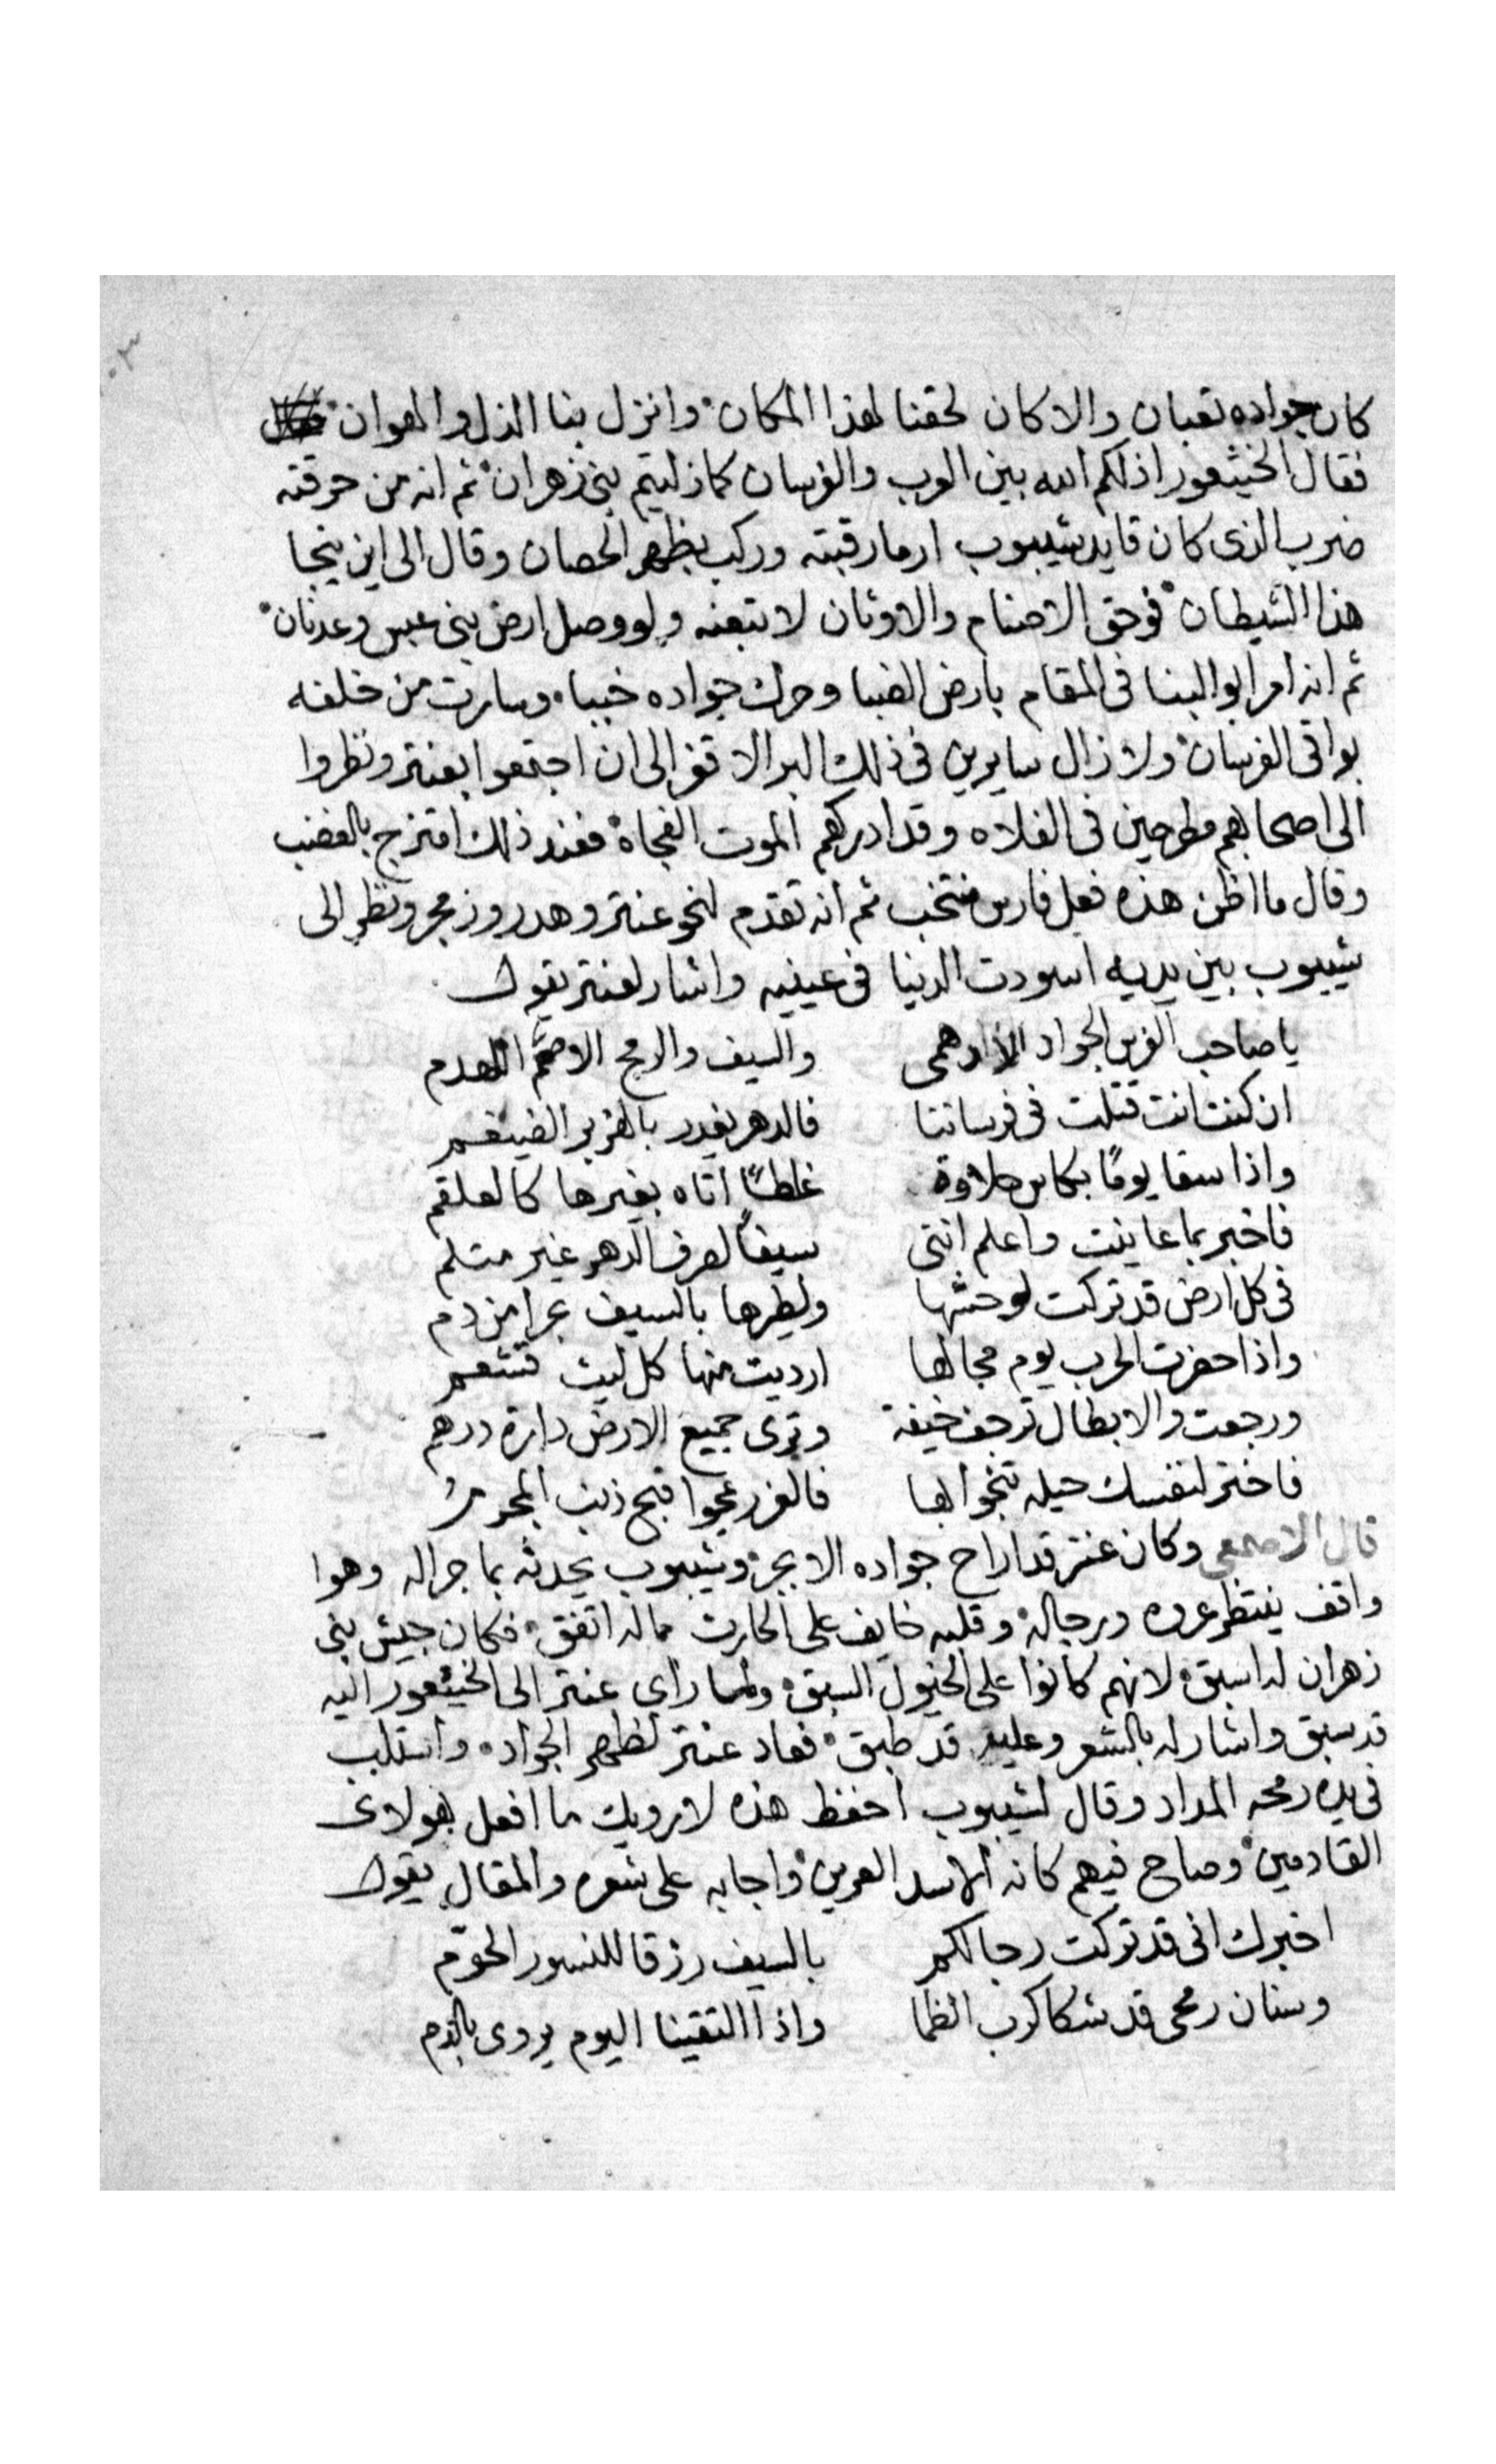 كان جواده تعبان والا كان لحقنا لهذا المكان وانزل بنا الذل والهوان
فقال الخيثعور اذلكم الله بين العرب والفرسان كما ذليتم بنى زهران ثم انه من حرقته
ضرب الذى كان قايد شيبوب ارما رقبته وركب بظهر الحصان وقال الى اين ينجا
هذا الشيطان فوحق الاصنام والاوثان لاتبعنه ولو وصل ارض بنى عبس وعدنان
ثم انه امر ابو البنا فى المقام بارض الضبا وحرك جواده خببا وسارت من خلفه
بواقى الفرسان ولا زال سايرين فى ذلك البر الاقفر الى ان اجتمعوا بعنتر ونظروا
الى اصحابهم مطرحين فى الفلاه وقد ادركهم الموت الفجاة فعند ذلك امتزج بالغضب
وقال ما اظن هذه فعل فارس منتخب ثم انه تقدم لنحو عنتر وهدر وزمجر ونظر الى
شيبوب بين يديه اسودت الدنيا فى عينيه واشار لعنتر يقول
يا صاحب الفرس الجواد الادهمى والسيف والرمح الاصم اللهدم
ان كنت انت قتلت فى فرساننا فالدهر يغدر بالهزبر الضيغم
واذا سقا يومًا بكاس حلاوة غلطًا اتاه بغيرها كالعلقم
فاخبر بما عاينت واعلم اننى سيفًا لصرف الدهر غير مثلم
فى كل ارض قد تركت لوحشها ولطيرها بالسيف بحرا من دم
واذا حضرت الحرب يوم مجالها ارديت منها كل ليث قشعم
ورجعت والابطال ترجف خيفة وترى جميع الارض دارة درهم
فاختر لنفسك حيله تنجوا بها فالعزر يمحوا قبح ذنب المجرم
قال الاصمعى وكان عنتر قد اراح جواده الابجر وشيبوب يحدثه بما جرا له وهوا
واقف ينتظر عروه ورجاله وقلبه خايف على الحارث مما له اتفق فكان جيش بنى
زهران له اسبق لانهم كانوا على الخيول السبق ولما راى عنتر الى الخيثعور اليه
قد سبق واشار له بالشعر وعليه قد طبق فعاد عنتر لظهر الجواد واستلب
فى يده رمحه المداد وقال لشيبوب احفظ هذه لاوريك ما افعل بهولاى
القادمين وصاح فيهم كانه الاسد العرين واجابه على شعره والمقال يقول
اخبرك انى قد تركت رجالكم بالسيف رزقا للنسور الحوّم
وسنان رمحى قد شكا كرب الظما واذا التقينا اليوم يروى بالدم